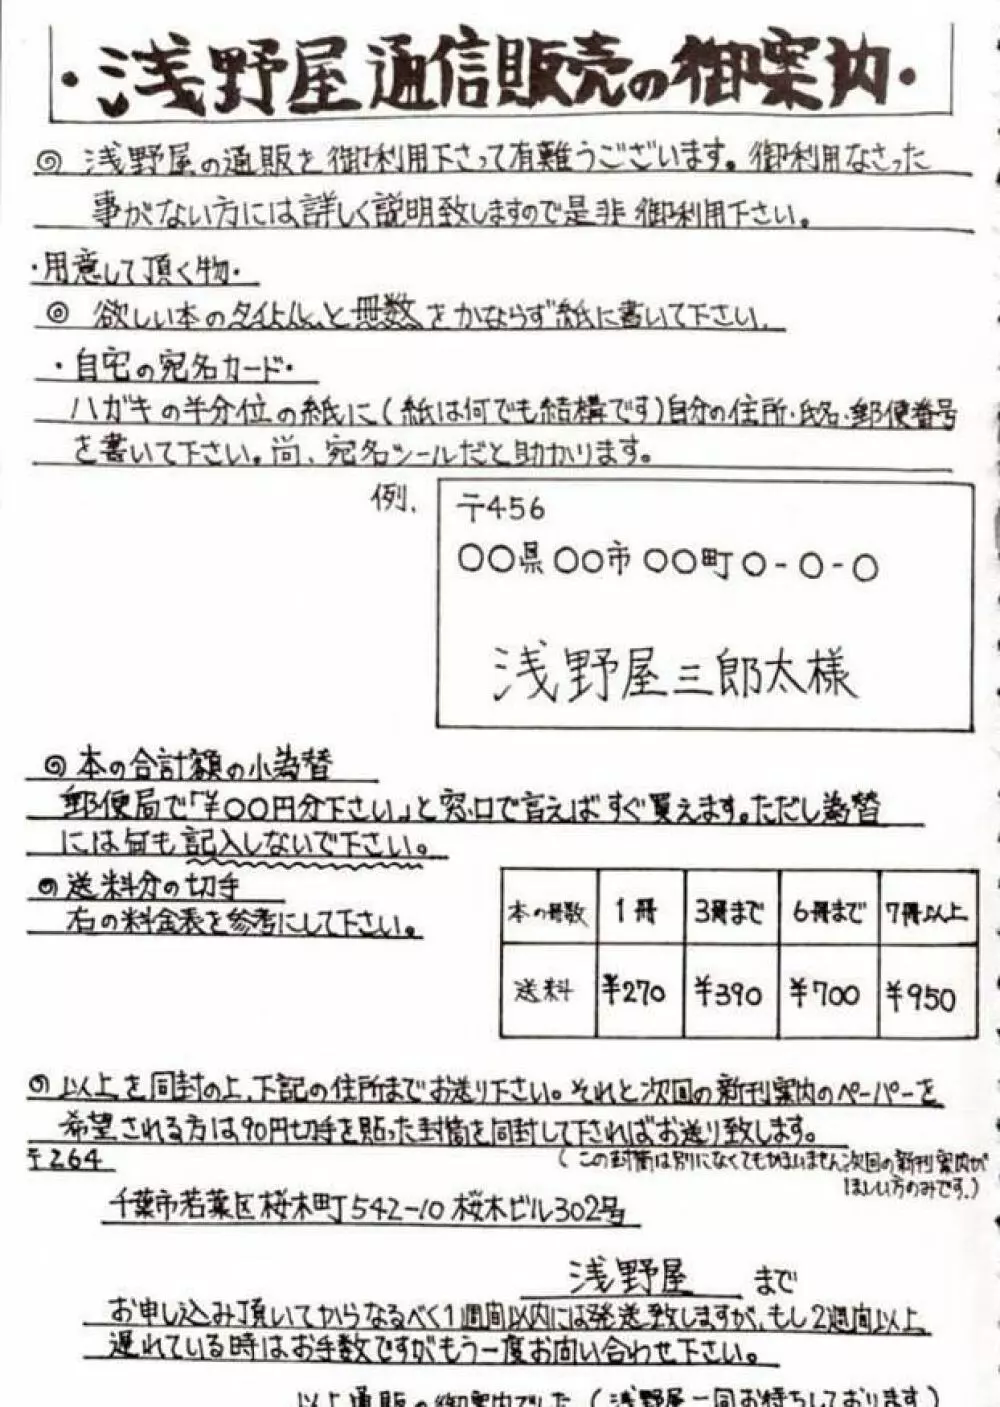 ・浅野屋通信販売の御案内・
◎ 浅野屋の通販を御利用下さって有難うございます。御利用なさった
事がない方には詳しく説明致しますので是非御利用下さい。
・用意して頂く物・
◎ 欲しい本のタイトルと冊数をかならず紙に書いて下さい。
・自宅の宛名カード・
ハガキの半分位の紙に(紙は何でも結構です)自分の住所・氏名・郵便番号
を書いて下さい。尚、宛名シールだと助かります。
例、
〒456
○○県○○市○○町○-○-○
浅野屋三郎太様
◎ 本の合計額の小為替
郵便局で「¥○○円分下さい」と窓口で言えばすぐ買えます。ただし為替
には何も記入しないで下さい。
◎ 送料分の切手
右の料金表を参考にして下さい。
本の冊数 1冊 3冊まで 6冊まで 7冊以上
送料 ¥270 ¥390 ¥700 ¥950
◎ 以上を同封の上、下記の住所までお送り下さい。それと次回の新刊案内のペーパーを
希望される方は90円切手を貼った封筒を同封して下さればお送り致します。
(この封筒は別になくてもかまいません。次回の新刊案内が
ほしい方のみです。)
〒264
千葉市若葉区桜木町542-10 桜木ビル302号
浅野屋 まで
お申し込み頂いてからなるべく1週間以内には発送致しますが、もし2週間以上
遅れている時はお手数ですがもう一度お問い合わせ下さい。
以上通販の御案内でした(浅野屋一同お待ちしております)